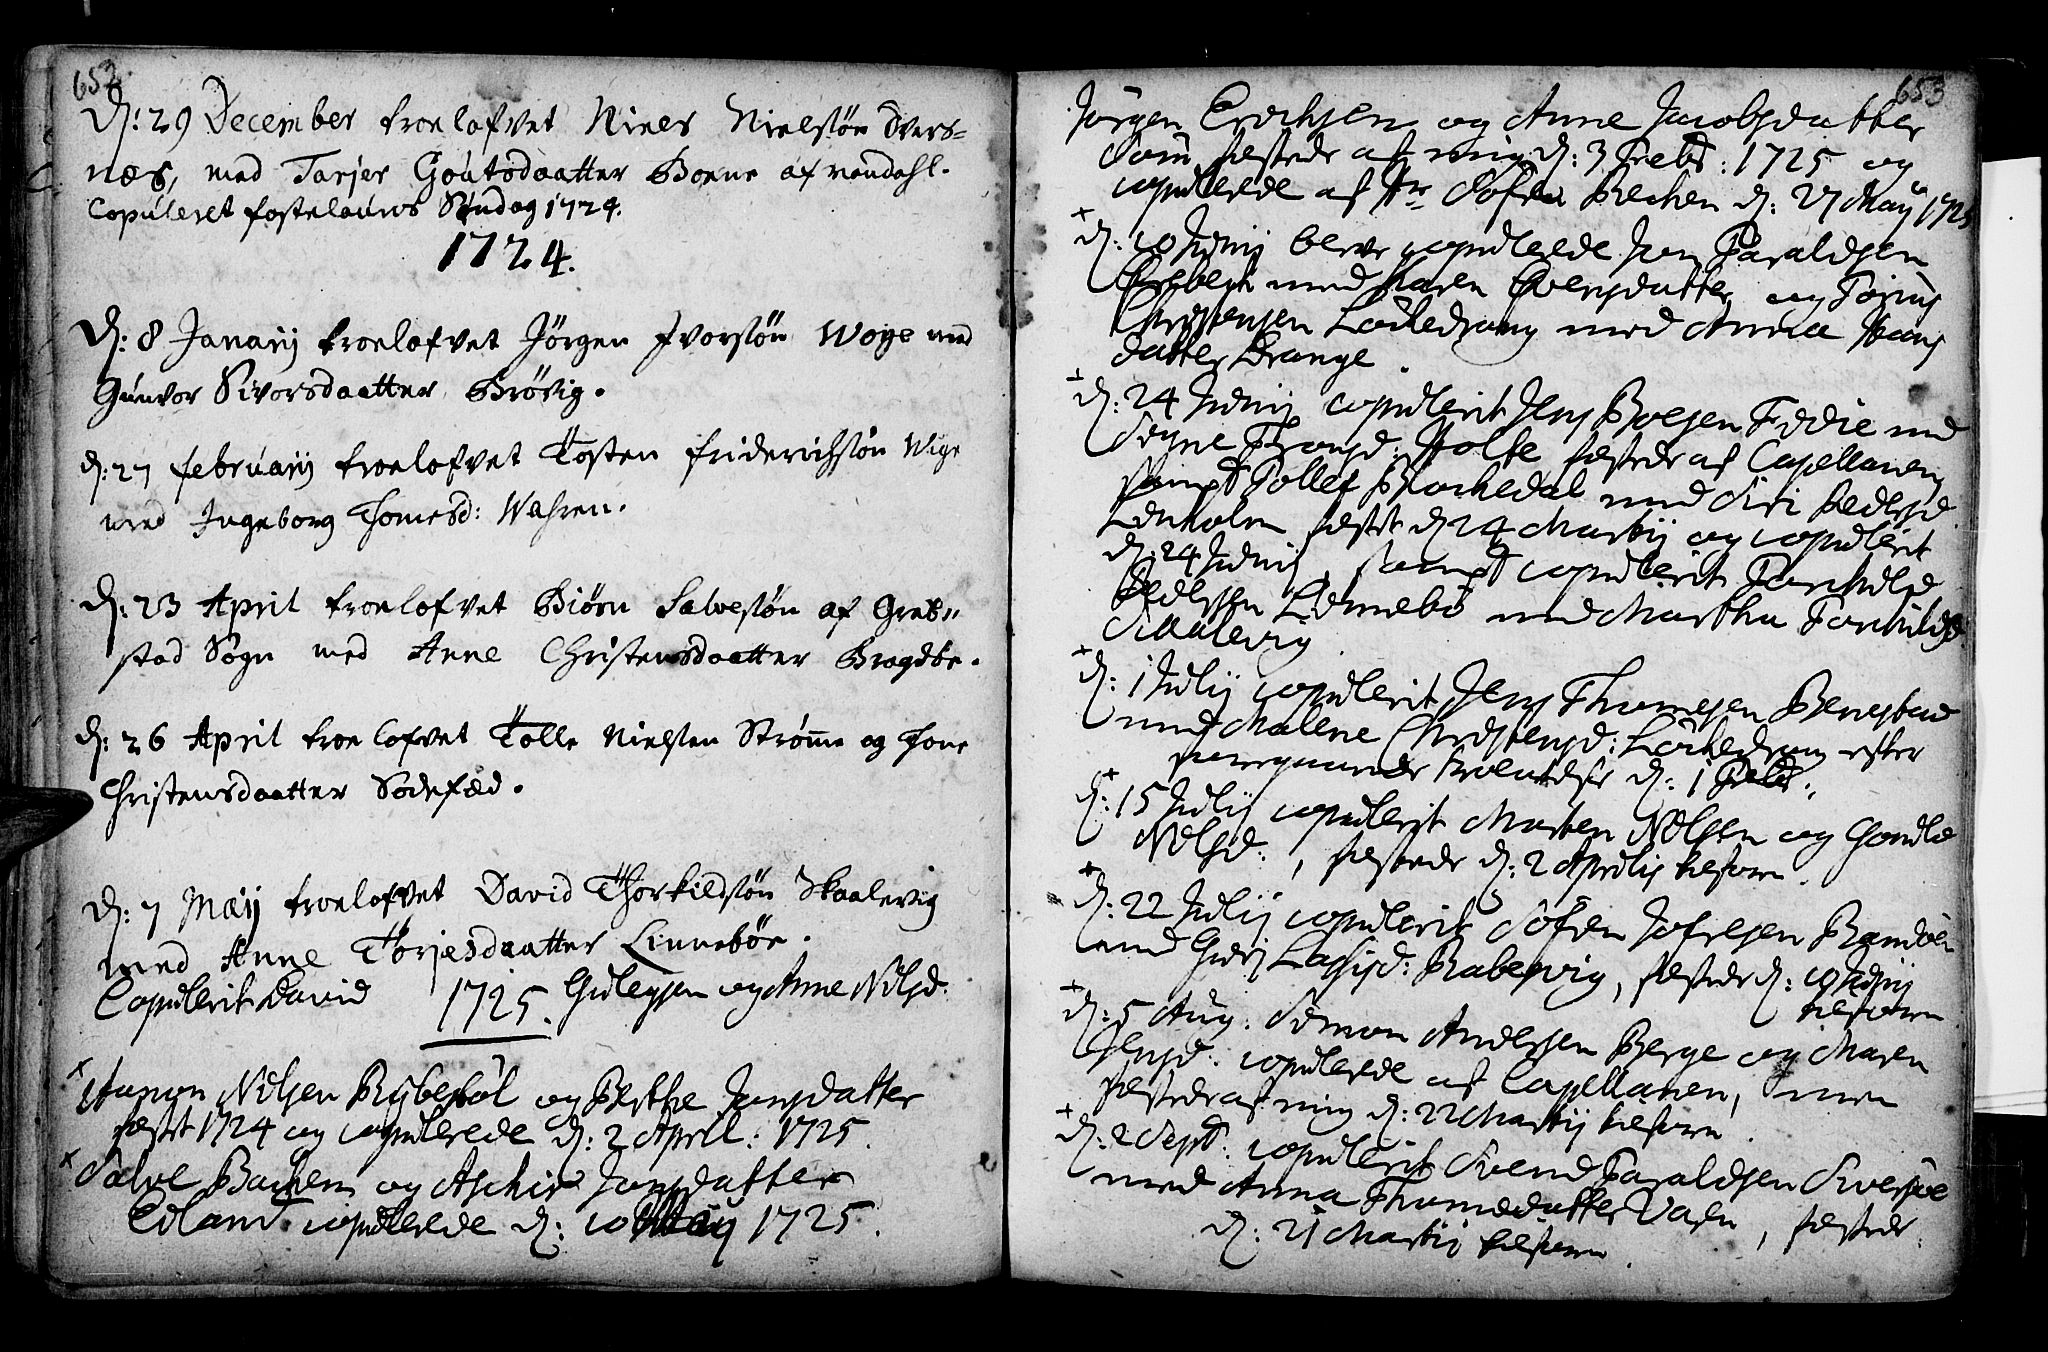 652.
D: 29 December troelofvet Niels Nielsøn Svers-
næs, med Tarjer Goutsdaatter Boene af
Copuleret fastelauns Søndag 1724.
1724.
D: 8 Janarij troelofvet Jörgen Ivorsøn Woge med
Gunvor Sivorsdaatter Brövig.
d: 27 februarij troelofvet Tosten friderichsøn Wige
med Ingeborg Thomesd: Wahren.
d: 23 April troelofvet Biörn Salvesøn af Greb„
stad Søgn med Anne Christensdaatter Bragdøe.
d: 26 April troelofvet Tolle Nielsen Strøme og Thore
Christensdaatter Sodefæd.
d: 7 Maij troelofvet David Thorkildsøn Skaalevig
med Anne Torjesdaatter Linnebøe.
Copulerit David Guleysen og Anne Nilsd:
1725.
Aanon Nilsen Rybestöl og Berthe Jonsdatter
festet 1724 og copulerede d: 2 April: 1725.
Salve Bachen og Aschier Jonsdatter
Eeland copulerede d: 10 Maij 1725.
653
Jörgen Erichsen og Anne Jacobsdatter
som festede af mig d: 3 Febr: 1725 og
copulerede af Hr Söfren Brechen d: 27 Maij 1725
d: 10 Junij bleve copulerede Jon Taraldsen
med Maren Evensdatter og
Christensen Lachedrang med Anna Hans
datter Drange.
d: 24 Junij copulerit Jens Boesen Fidie med
Signe Trongd: Holte festede af Capellanen
sampt Tollef Blachedal med Siri Pedersd
Lenholm festet d 24 Martij og copulerit
d: 24 Junij, sampt copulerit Torchild
Pedersen Lennebö med Martha Torchilds
Schalevig
d: 1 Julij copulerit Jens Thomesen Benestad
med Malene Christensd: Lachedrang efter
foregaaende troelofelse d: 1 Febr.
d: 15 Julij copulerit Morten Nilsen og Gondle
Nilsd:, festede d: 2 Aprilis tilforn.
d: 22 Julij copulerit Söfren Jofrejsen Randöen
med Guri Lassisd: Rabervig, festede d: 10 Junij
tilforn
d: 5 Aug: Simon Andersen Berge og Maren
Jensd: copulerede af Capellanen, men
festede af mig d: 22 Martij tilforn.
d: 2 Sept: copulerit Svend Taraldsen
med Anna Thomedatter Varen, festede
d: 21 Martij tilforn.